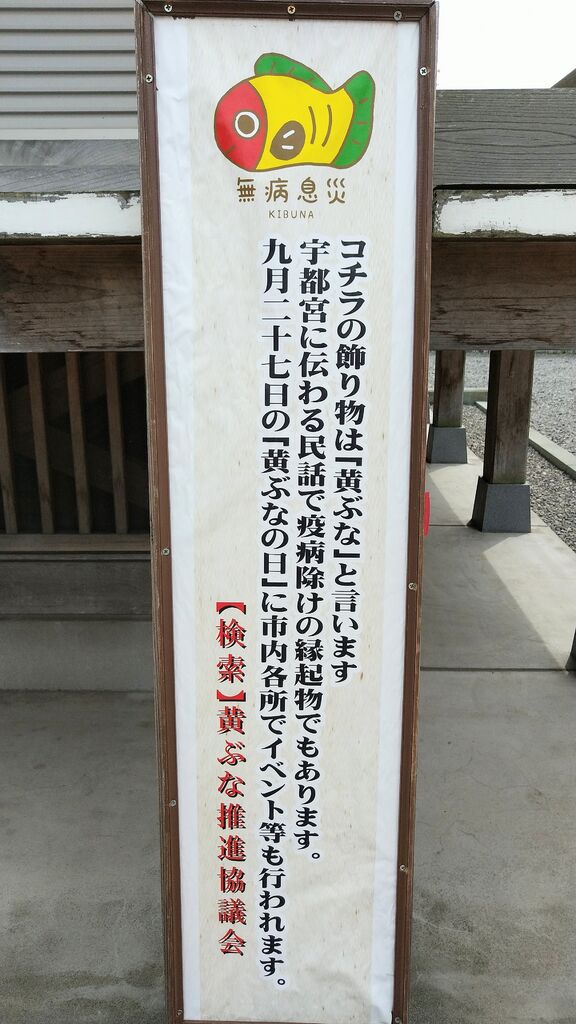 無病息災
KIBUNA
コチラの飾り物は『黄ぶな』と言います
宇都宮に伝わる民話で疫病除けの縁起物でもあります。
九月二十七日の『黄ぶなの日』に市内各所でイベント等も行われます。
【検索】黄ぶな推進協議会